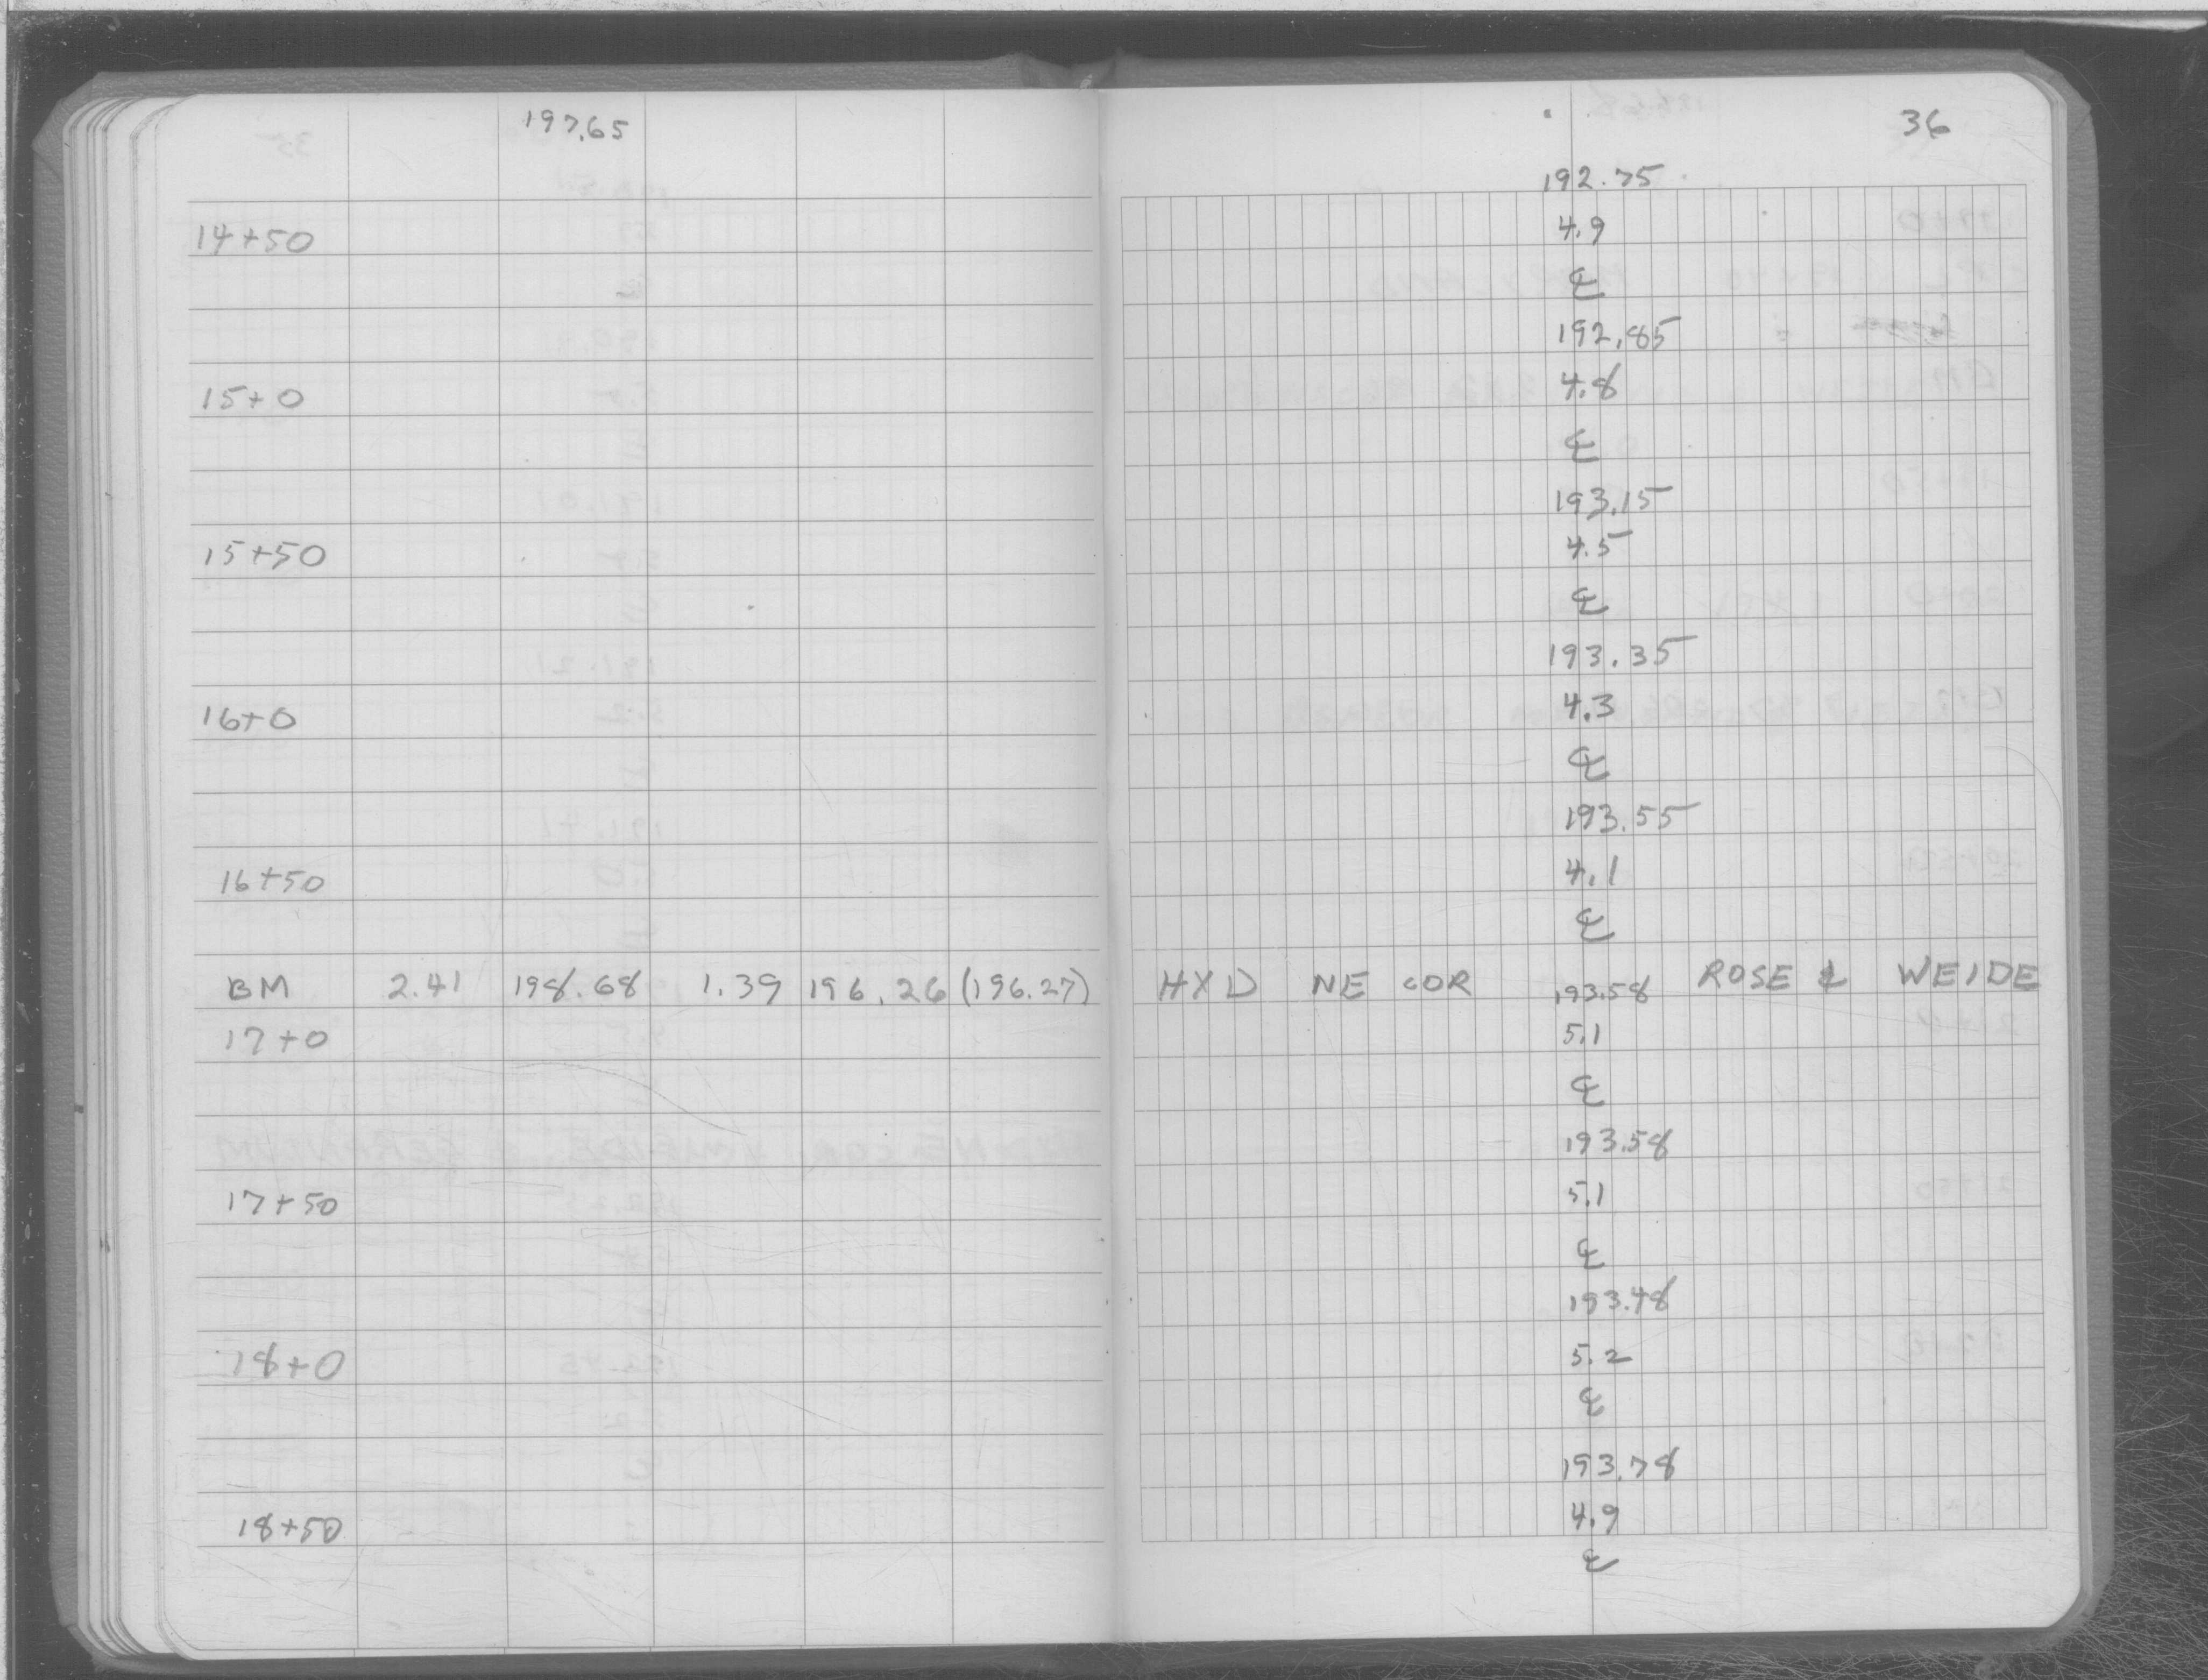 197.65 36
192.75
14+50 4.9
℄
192.85
15+0 4.8
℄
193.15
15+50 4.5
℄
193.35
16+0 4.3
℄
193.55
16+50 4.1
℄
BM 2.41 198.68 1.39 196.26 (196.27) HYD NE COR 193.58 ROSE & WEIDE
17+0 5.1
℄
193.58
17+50 5.1
℄
193.48
18+0 5.2
℄
193.78
18+50 4.9
℄